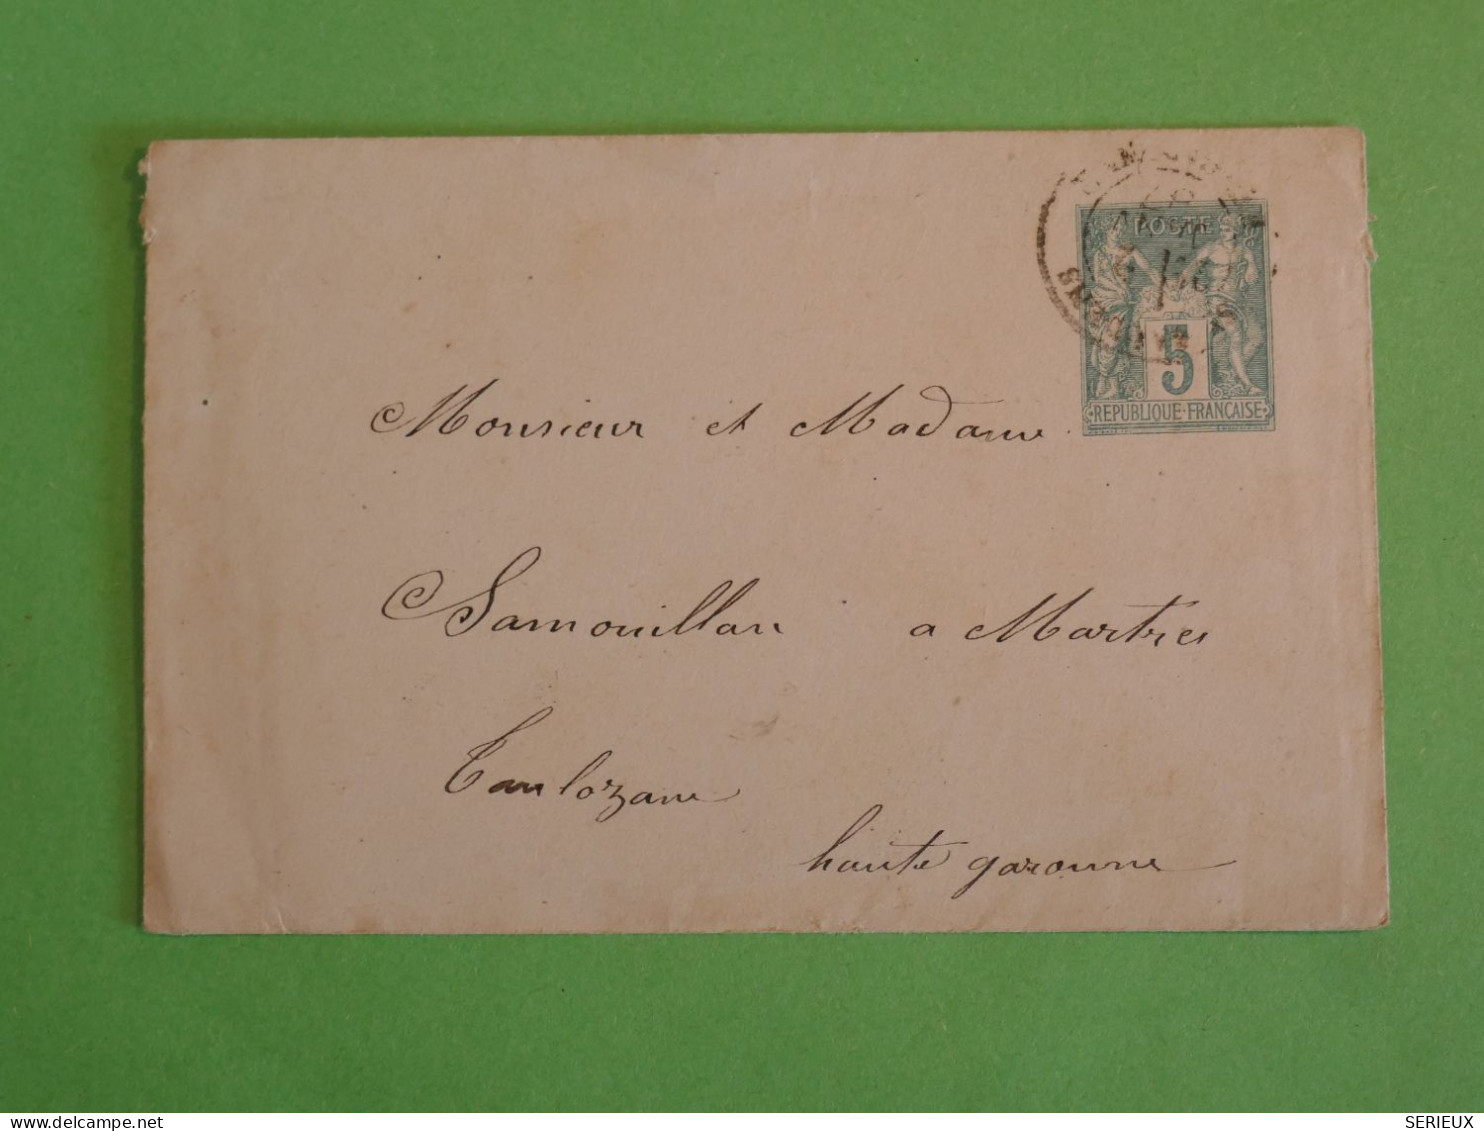 POSTE
5
REPUBLIQUE FRANÇAISE
Monsieur et Madame
Samouillan a Martres
Taulozane
haute garonne
SERIEUX